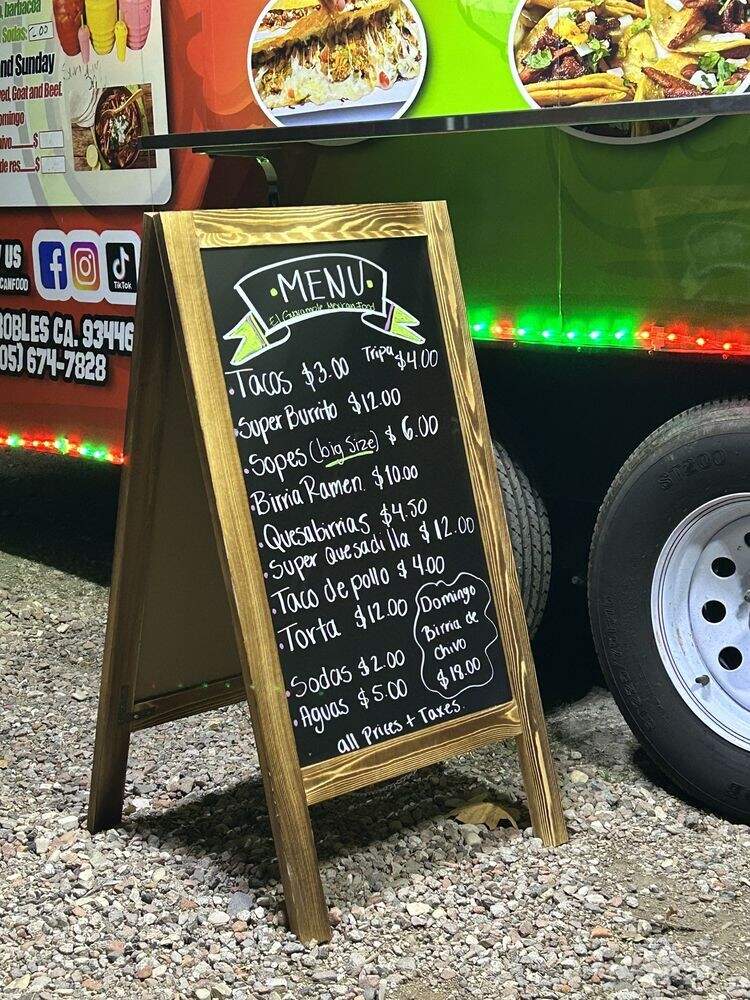 barbacoa
Sodas: 2.00
nd Sunday
ved, Goat and Beef.
omingo
ivo $
de res $
US
CANFOOD
TikTok
OBLES CA. 93446
05) 674-7828
MENU
Mexican Food
• Tacos $3.00 Tripa $4.00
• Super Burrito $12.00
• Sopes (big Size) $6.00
• Birria Ramen. $10.00
• Quesabirrias $4.50
• Super Quesadilla $12.00
• Taco de pollo $4.00
• Torta $12.00
Domingo
Birria de
Chivo
$18.00
• Sodas $2.00
• Aguas $5.00
all Prices + Taxes.
ST200